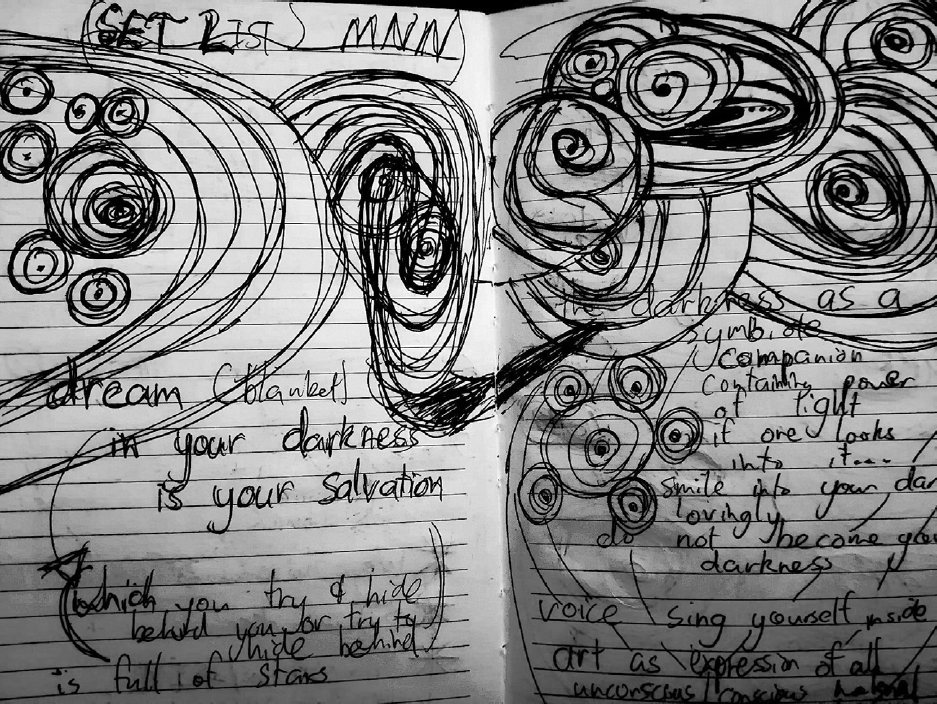 (SET LIST) MNN
dream (blanket)
in your darkness
is your salvation
(which you try & hide
behind you or try to
hide behind)
is full of stars
the darkness as a
symbiote
companion
containing power
of light
if one looks
into it...
smile into your dar
lovingly
do not become you
darkness
voice sing yourself inside
art as expression of all
unconscious/conscious